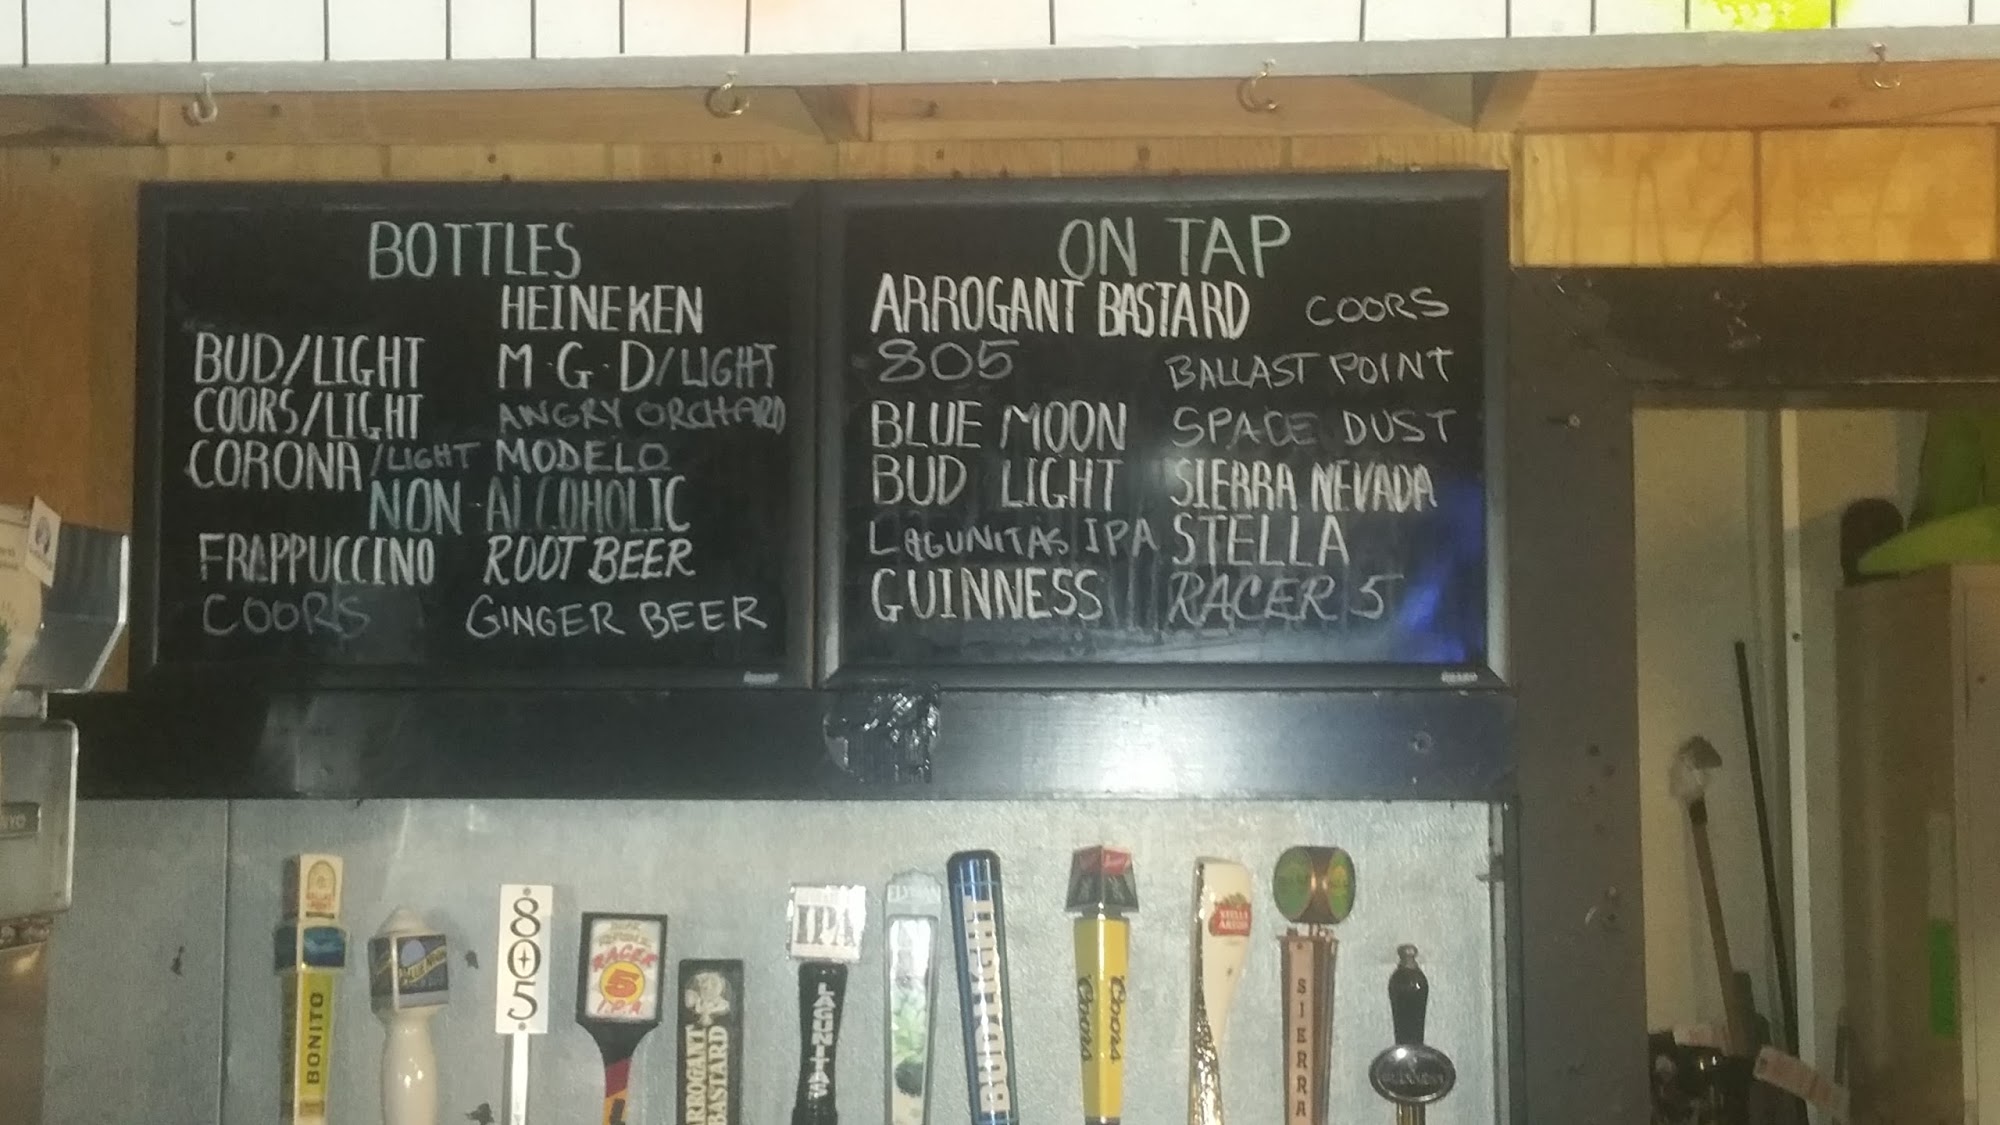 BOTTLES
HEINEKEN
BUD/LIGHT M·G·D/LIGHT
COORS/LIGHT ANGRY ORCHARD
CORONA/LIGHT MODELO
NON-ALCOHOLIC
FRAPPUCCINO ROOT BEER
COORS GINGER BEER
ON TAP
ARROGANT BASTARD COORS
805 BALLAST POINT
BLUE MOON SPACE DUST
BUD LIGHT SIERRA NEVADA
LAGUNITAS IPA STELLA
GUINNESS RACER 5
BONITO
BLUE MOON
805
RACER
5
I.P.A
ARROGANT
BASTARD
IPA
LAGUNITAS
ELYSIAN
BUD LIGHT
Coors
Coors
STELLA
ARTOIS
SIERRA
GUINNESS